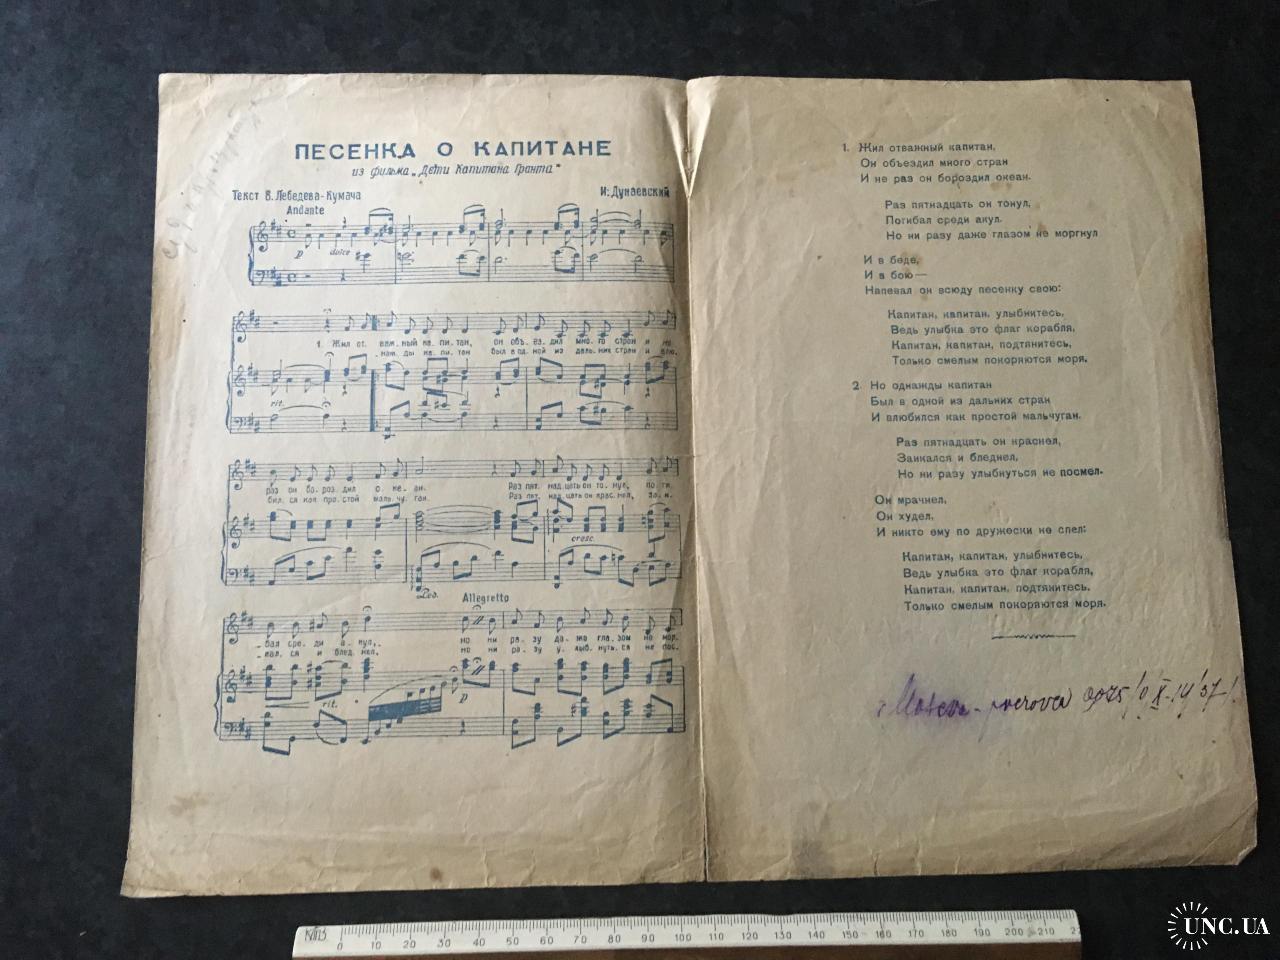 ПЕСЕНКА О КАПИТАНЕ
из фильма „Дети Капитана Гранта"
Текст В. Лебедева-Кумача
И. Дунаевский
Andante
p dolce
1. Жил от. важ.ный ка.пи.тан, он объ.ез.дил мно.го стран и не
.наж.ды ка.пи.тан был в од.ной из даль.них стран и влю.
rit.
раз он бо.роз.дил о.ке.ан. Раз пят.над.цать он то.нул, по.ги.
бил.ся как про.стой маль.чу.ган. Раз пят.над.цать он крас.нел, за.и.
cresc.
Ped.
Allegretto
.бал сре.ди а.кул, но ни ра.зу да.же гла.зом не мор.
.кал.ся и блед.нел, но ни ра.зу у.лыб.нуть.ся не пос.
rit.
p
1. Жил отважный капитан,
Он объездил много стран
И не раз он бороздил океан.
Раз пятнадцать он тонул,
Погибал среди акул.
Но ни разу даже глазом не моргнул
И в беде,
И в бою—
Напевал он всюду песенку свою:
Капитан, капитан, улыбнитесь,
Ведь улыбка это флаг корабля,
Капитан, капитан, подтянитесь,
Только смелым покоряются моря.
2. Но однажды капитан
Был в одной из дальних стран
И влюбился как простой мальчуган.
Раз пятнадцать он краснел,
Заикался и бледнел,
Но ни разу улыбнуться не посмел.
Он мрачнел,
Он худел,
И никто ему по дружески не спел:
Капитан, капитан, улыбнитесь,
Ведь улыбка это флаг корабля,
Капитан, капитан, подтянитесь.
Только смелым покоряются моря.
0 10 20 30 40 50 60 70 80 90 100 110 120 130 140 150 160 170 180 190 200 210
UNC.UA